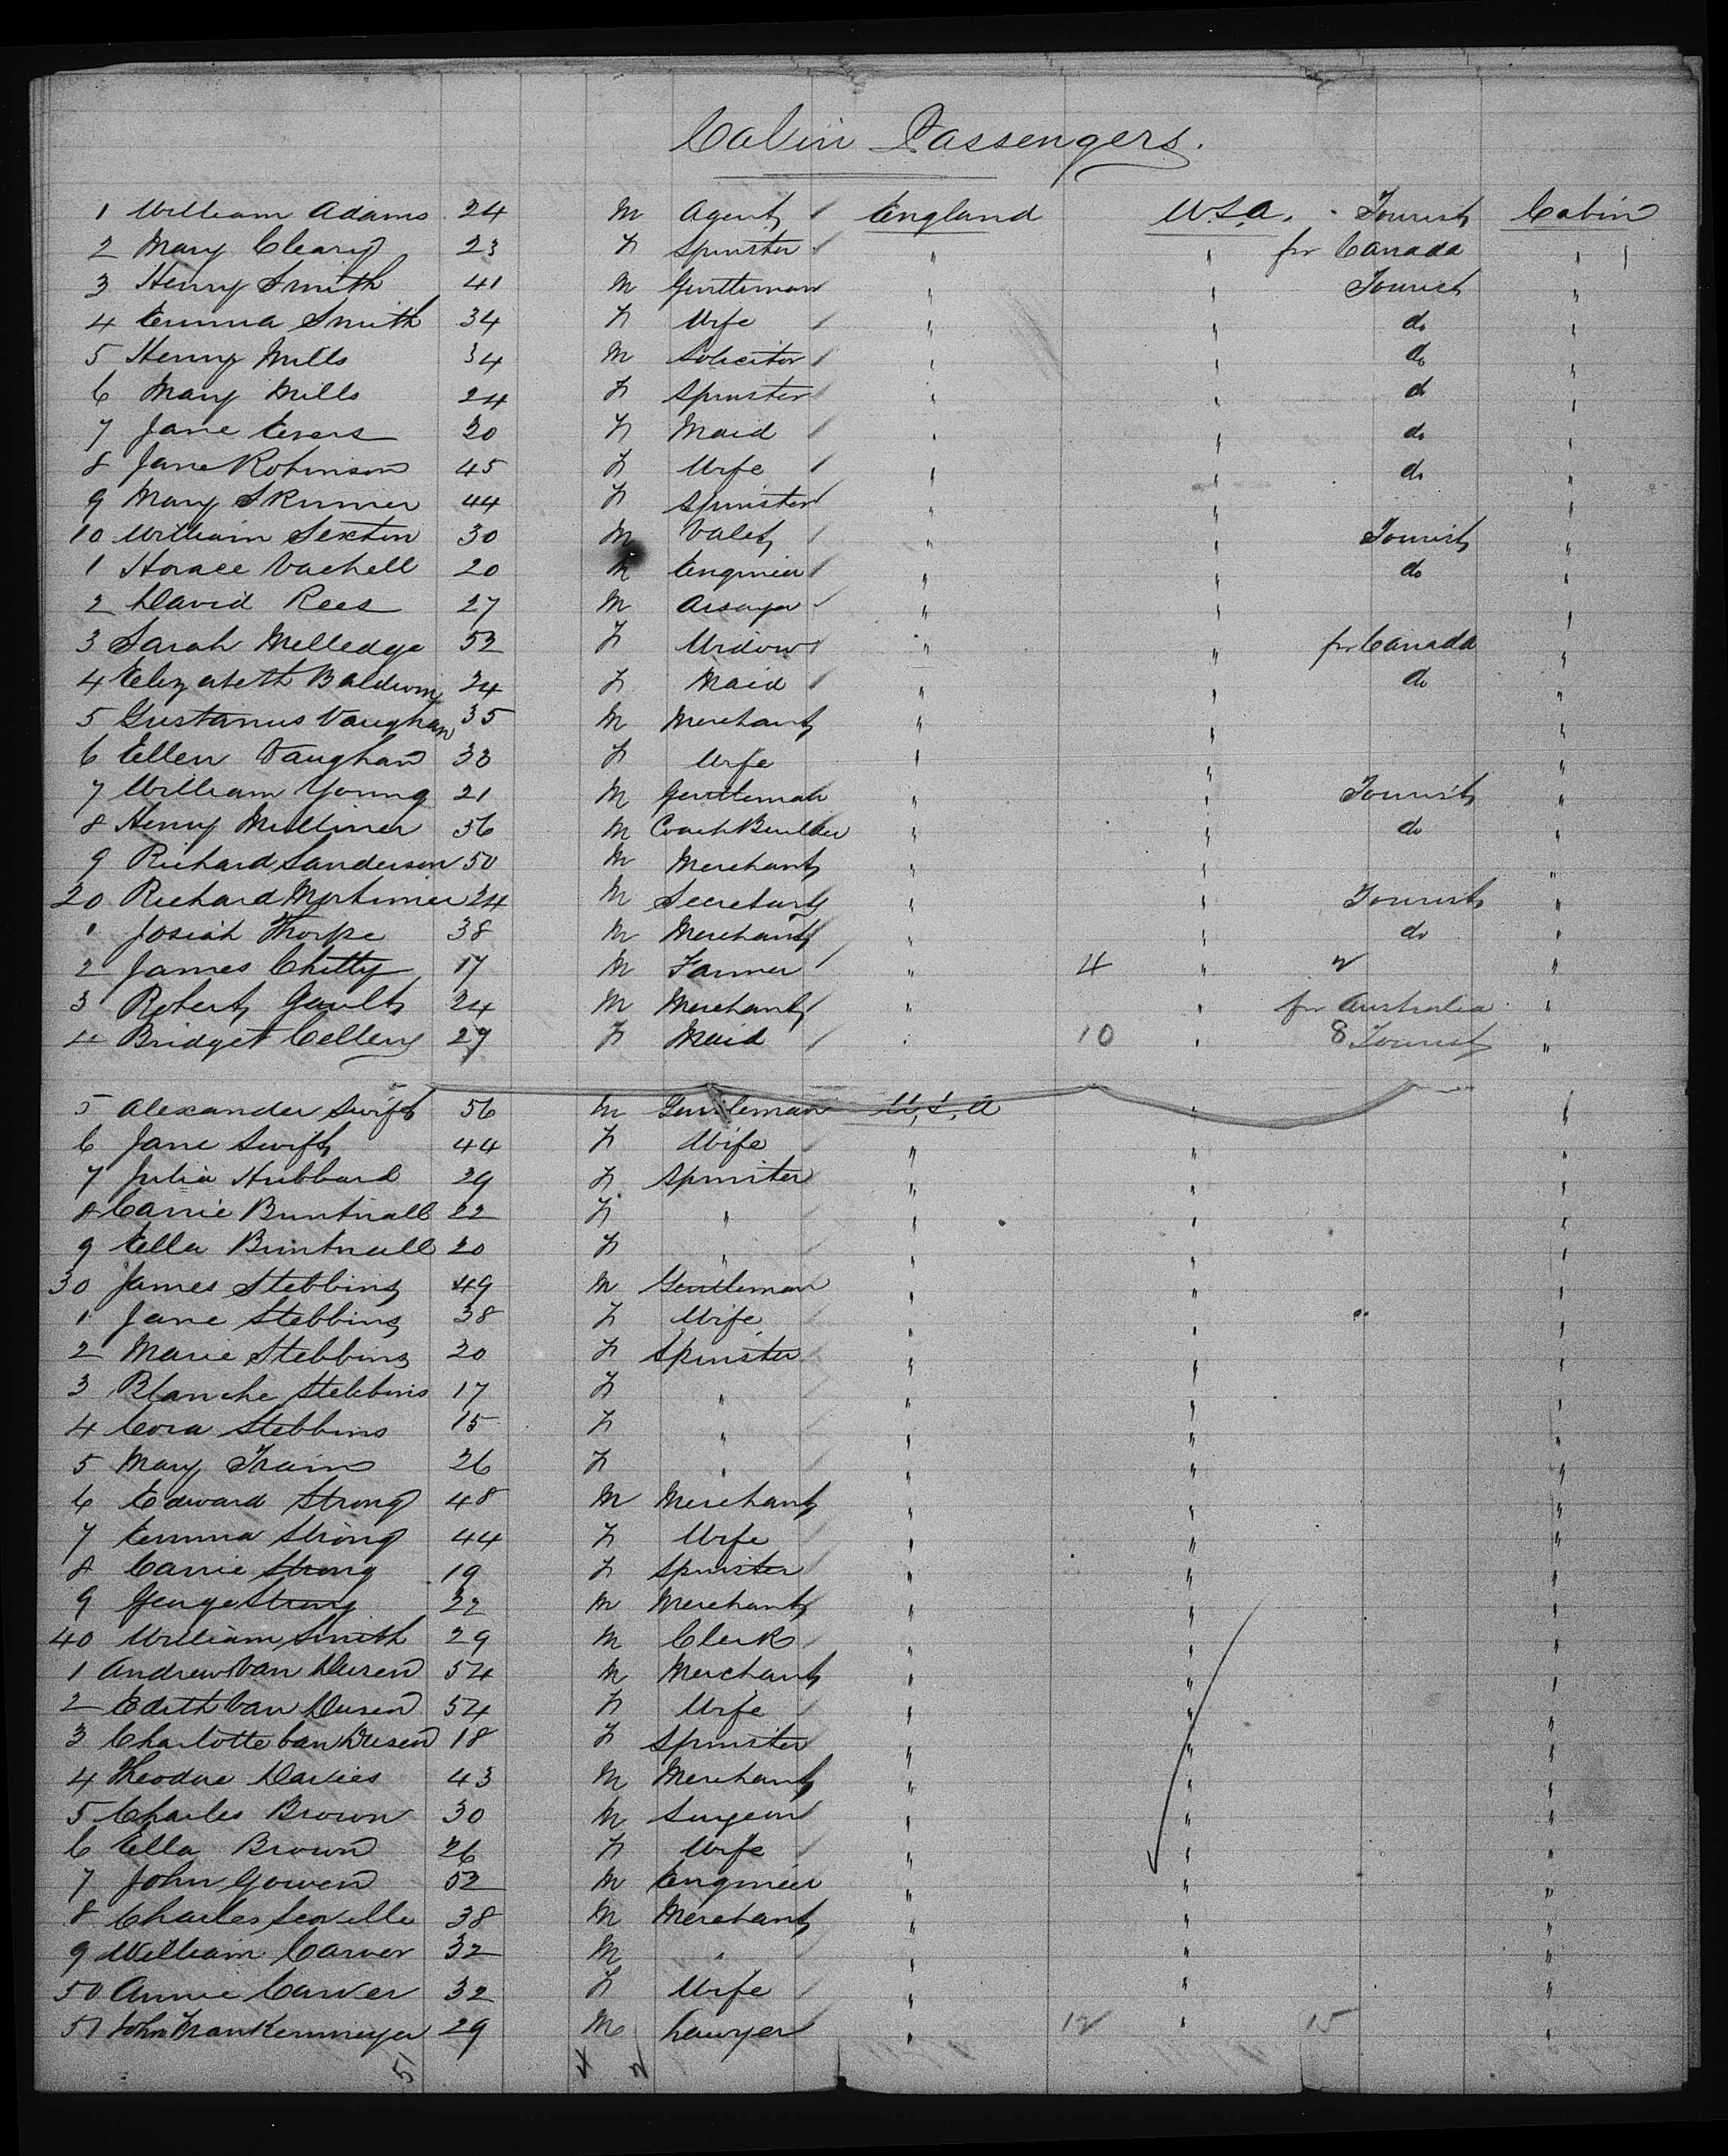 Cabin Passengers.
1 William Adams 24 M Agent England U.S.A. Tourist Cabin
2 Mary Cleary 23 F Spinster " " for Canada "
3 Henry Smith 41 M Gentleman " " Tourist "
4 Emma Smith 34 F Wife " " do "
5 Henry Mills 34 M Solicitor " " do "
6 Mary Mills 24 F Spinster " " do "
7 Jane Evers 30 F Maid " " do "
8 Jane Robinson 45 F Wife " " do "
9 Mary Skinner 44 F Spinster " " "
10 William Sexton 30 M Valet " " Tourist "
1 Horace Vachell 20 M Engineer " " do "
2 David Rees 27 M Assayer " " "
3 Sarah Melledge 52 F Widow " " for Canada "
4 Elizabeth Baldwin 24 F Maid " " do "
5 Gustanus Vaughan 35 M Merchant " " "
6 Ellen Vaughan 33 F Wife " " "
7 William Young 21 M Gentleman " " Tourist "
8 Henry Mulliner 36 M Coach Builder " " do "
9 Richard Sanderson 50 M Merchant " " "
20 Richard Mortimer 24 M Secretary " " Tourist "
1 Josiah Thorpe 38 M Merchant " " do "
2 James Chitty 17 M Farmer " 4 " "
3 Robert Gault 24 M Merchant " " for Australia "
4 Bridget Cellery 29 F Maid " 10 " 8 Tourist "
5 Alexander Swift 56 M Gentleman U.S.A " "
6 Jane Swift 44 F Wife " " "
7 Julia Hubbard 29 F Spinster " " "
8 Carrie Buntnall 22 F " " " "
9 Ella Buntnall 20 F " " " "
30 James Stebbins 49 M Gentleman " " "
1 Jane Stebbins 38 F Wife " " "
2 Marie Stebbins 20 F Spinster " " "
3 Blanche Stebbins 17 F " " " "
4 Cora Stebbins 15 F " " " "
5 Mary Train 26 F " " " "
6 Edward Strong 48 M Merchant " " "
7 Emma Strong 44 F Wife " " "
8 Carrie Strong 19 F Spinster " " "
9 George Strong 22 M Merchant " " "
40 William Smith 29 M Clerk " " "
1 Andrew Van Dusen 54 M Merchant " " "
2 Edith Van Dusen 54 F Wife " " "
3 Charlotte Van Dusen 18 F Spinster " " "
4 Theodore Davies 43 M Merchant " " "
5 Charles Brown 30 M Surgeon " " "
6 Ella Brown 26 F Wife " " "
7 John Gowen 52 M Engineer " " "
8 Charles Seville 38 M Merchant " " "
9 William Carver 32 M " " " "
50 Annie Carver 32 F Wife " " "
51 John Frankenmeyer 29 M Lawyer " 12 " 15 "
51